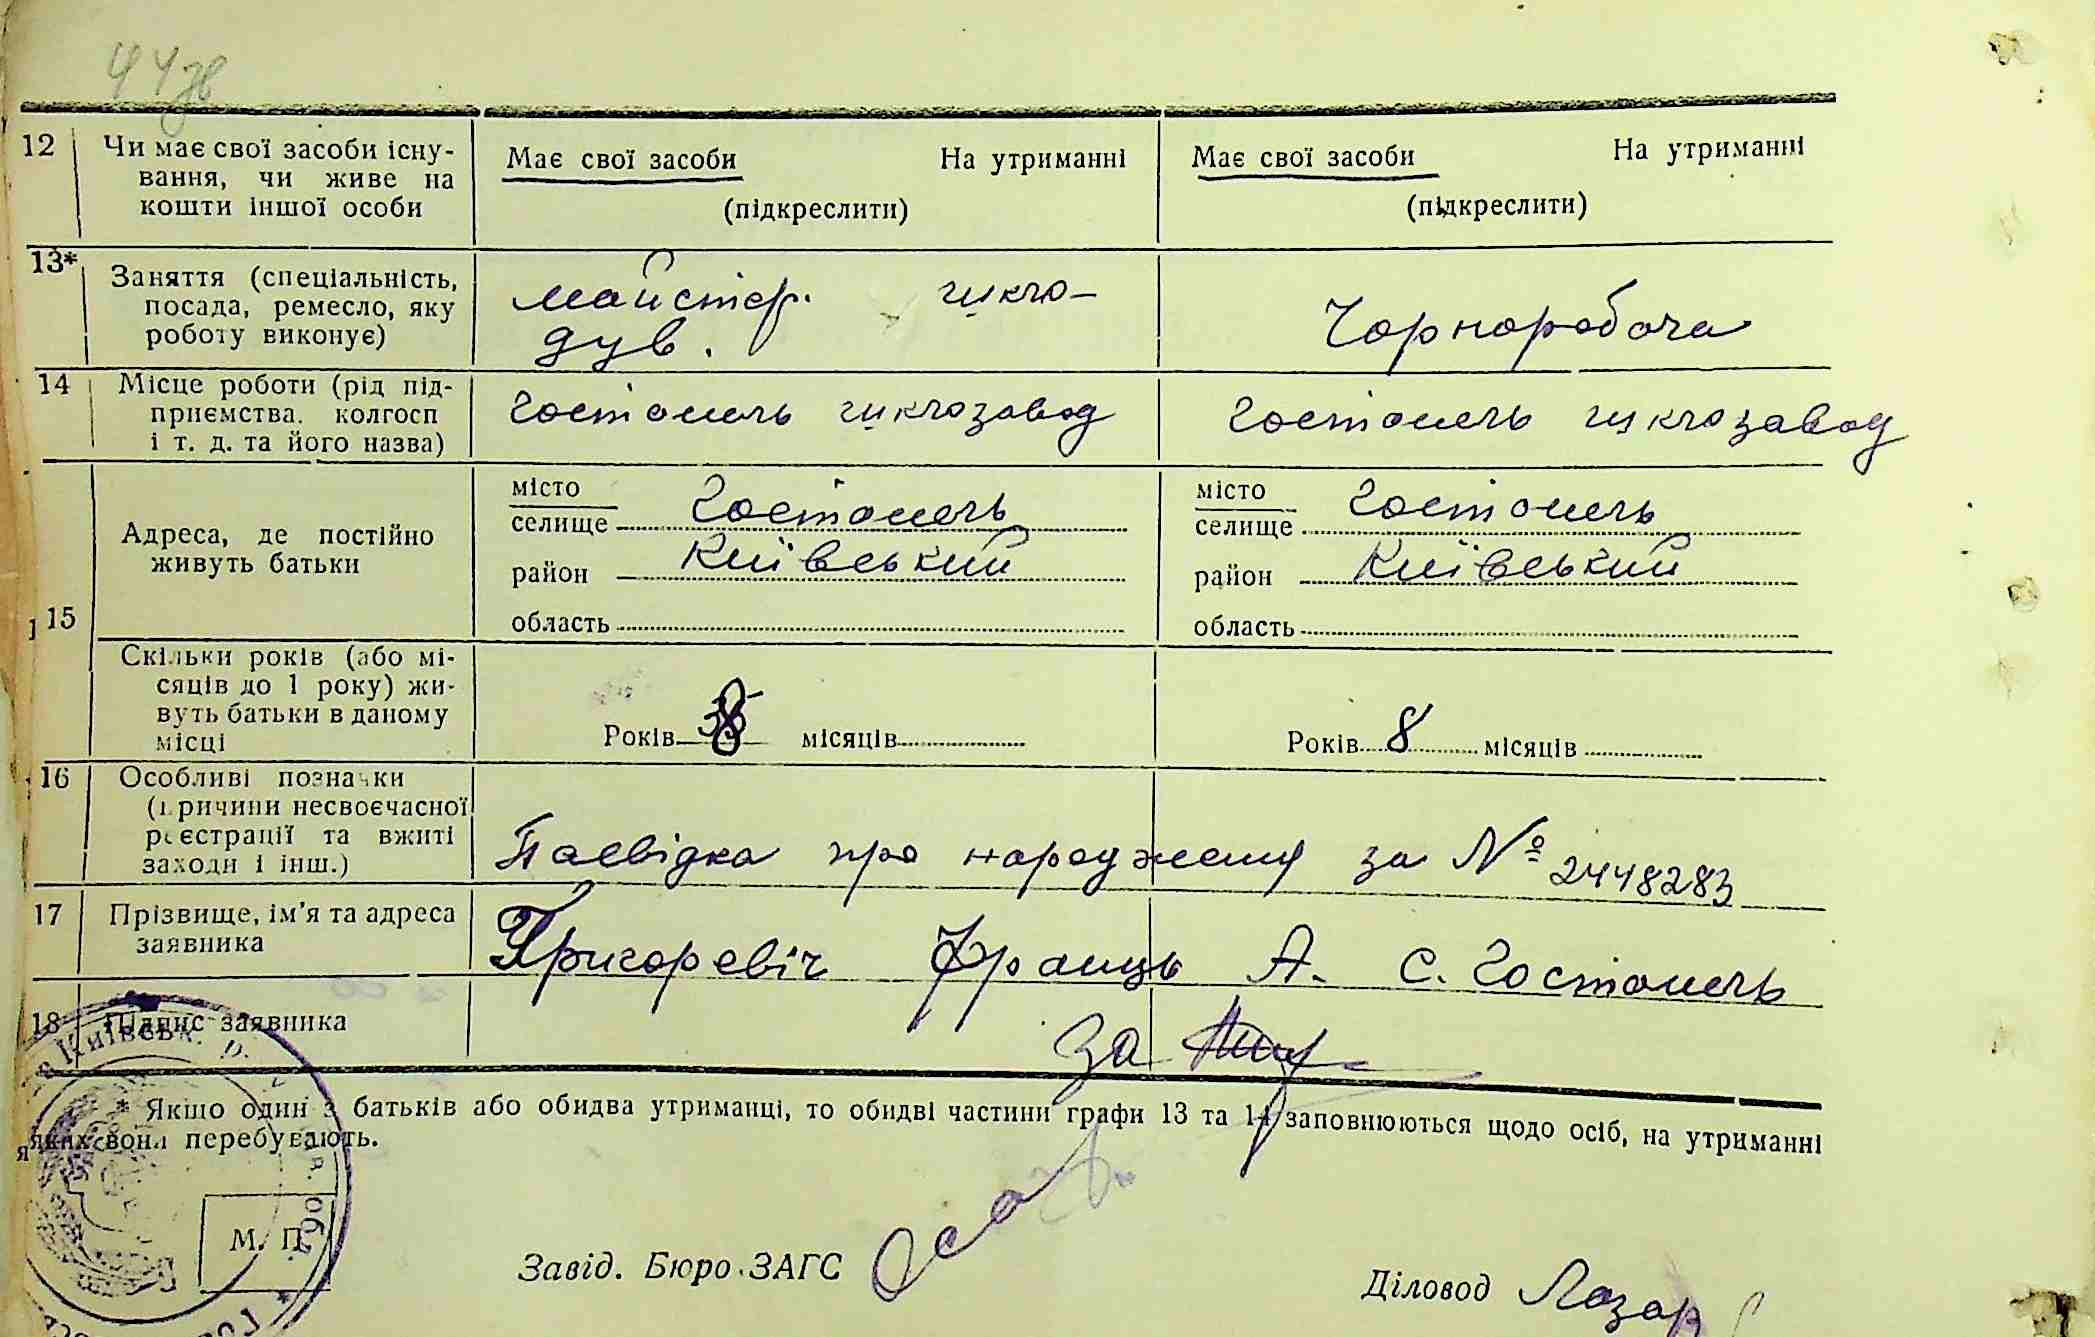 44зв
12 Чи має свої засоби існу-
вання, чи живе на
кошти іншої особи
Має свої засоби На утриманні
(підкреслити)
Має свої засоби На утриманні
(підкреслити)
13* Заняття (спеціальність,
посада, ремесло, яку
роботу виконує)
майстер. гукло-
дув.
Чорноробоча
14 Місце роботи (рід під-
приємства. колгосп
і т. д. та його назва)
Гостомель гуклозавод
Гостомель гуклозавод
15 Адреса, де постійно
живуть батьки
місто
селище Гостомель
район Київський
область
місто
селище Гостомель
район Київський
область
Скільки років (або мі-
сяців до 1 року) жи-
вуть батьки в даному
місці
Років 8 місяців
Років 8 місяців
16 Особливі позначки
(причини несвоєчасної
реєстрації та вжиті
заходи і інш.)
Посвідка про народження за № 2448283
17 Прізвище, ім'я та адреса
заявника
Григоревіч Франць А. с. Гостомель
18 Підпис заявника
за
* Якщо один з батьків або обидва утриманці, то обидві частини графи 13 та 14 заповнюються щодо осіб, на утриманні
яких вони перебувають.
Київськ.
М. П.
Завід. Бюро ЗАГС
Діловод Лазар